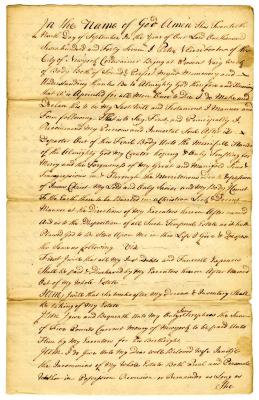 In the Name of God Amen This Twenty
Ninth Day of September In the Year of Our Lord One thousand
Seven hundred and Forty Seven I Peter of the
City of New York Cordwainer Being at Present Very Weak
of Body But of Sound & Perfect Mind Memory and
Understanding thanks Be to Almighty God therefore and Knowing
that it is Appointed for all Men Once to Die Do Make and
Declare this to be My Last Will and Testament In Manner and
Form following. That is to Say First and Principally I
Recommend My Precious and Immortal Soul After its
Departure Out of this Frail Body Unto the Mercifull Hands
of the Almighty God My Creator hoping & Only Trusting for
Mercy and the Forgiveness of My Great and Manifold
Transgressions in & Through the Meritorious Death & Passion
of Jesus Christ My Lord and Only Savior and My Body I Commit
To the Earth there to be Buried in a Christian Like & Decent
Manner at the Directions of My Executors herein After named
And as to the Disposition of all Such Temporall Estate as it hath
Pleased God to Bestow Upon Me in this Life I Give & Dispose
the Same as following Viz
First I will that all My Just Debts and Funerall Expences
Shall be paid & Discharged by My Executors herein After Named
Out of My Whole Estate
Item I will that Soon after My Decease & Inventory Shall
be taking of My Estate
Item I Give and Bequeath Unto My Son the Sum
of Five Pounds Current Money of New York to be paid Unto
Him by My Executors for his Birthright
Item I do Give Unto My Dear Well Beloved Wife
the Incomings of My Whole Estate Both Real and Personal
in Possession Reversion or Remainder as Long as
She